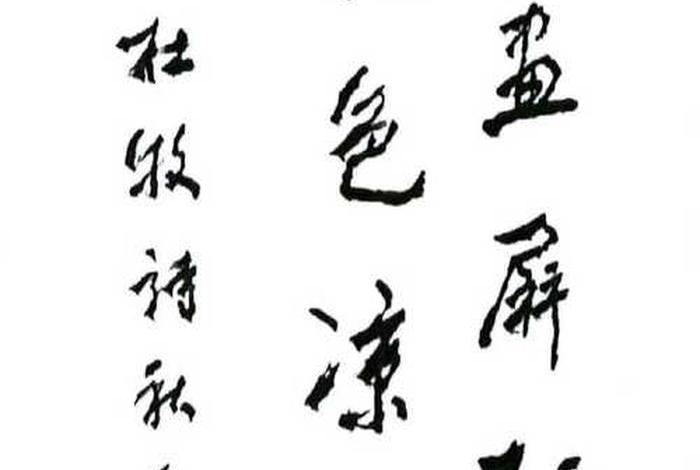 画屏
色凉
杜牧诗秋